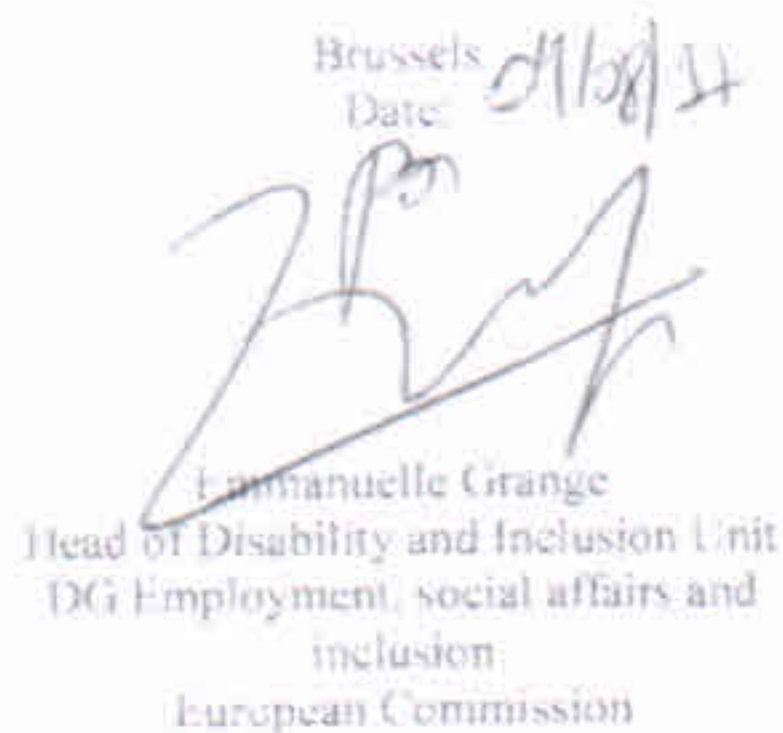 Brussels
Date:
Emmanuelle Grange
Head of Disability and Inclusion Unit
DG Employment, social affairs and
inclusion
European Commission